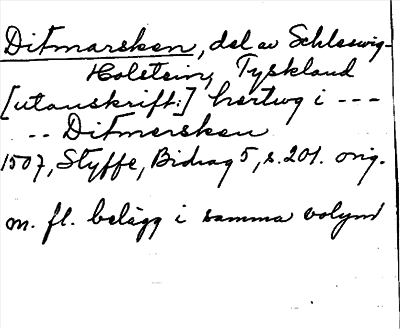 Ditmarsken, del av Schleswig-
Holstein, Tyskland
[utanskrift:] hertug i ---
-- Ditmersken
1507, Styffe, Bidrag 5, s. 201. orig.
m. fl. belägg i samma volym